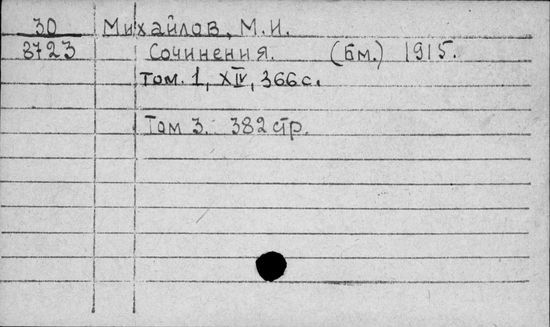 30 Михайлов, М.И.
3723 Сочинения. (бм.) 1915.
Том. 1, XIV, 366 с.
Том 3. 382 стр.